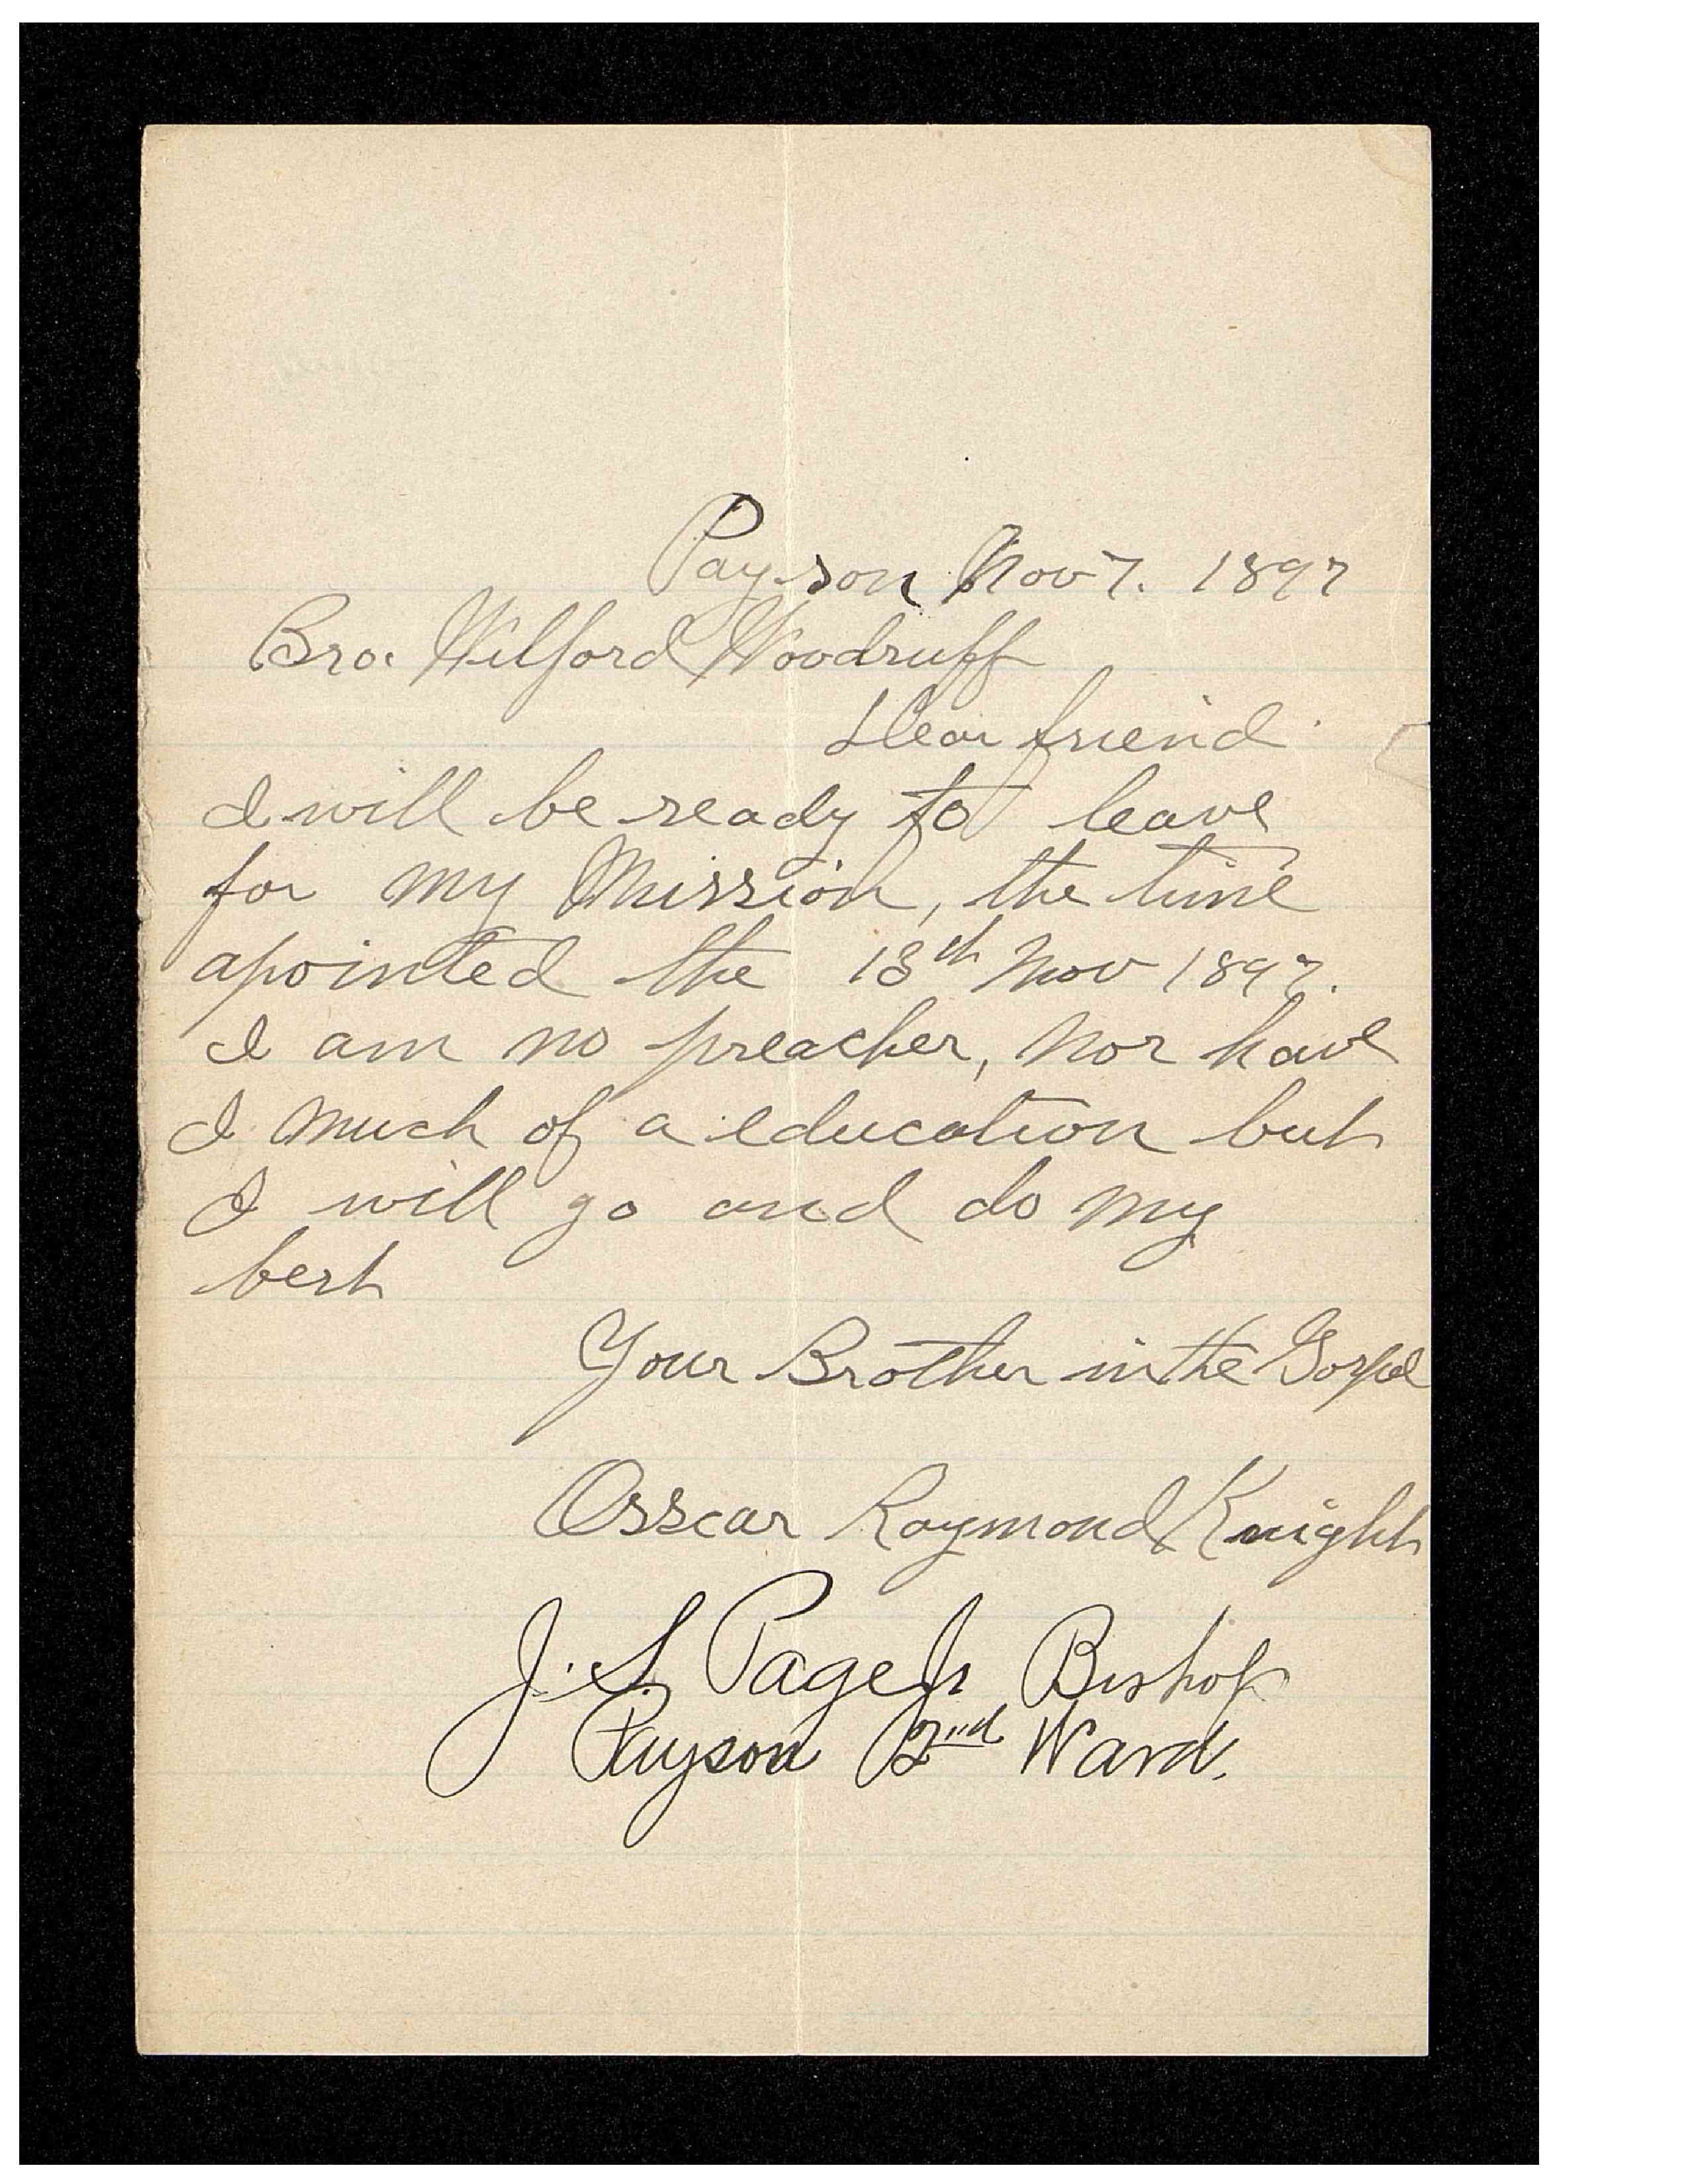 Payson Nov 7. 1897
Bro. Wilford Woodruff
Dear friend
I will be ready to leave
for my Mission, the time
apointed the 18th Nov 1897.
I am no preacher, Nor have
I Much of a education but
I will go and do my
best
Your Brother in the Gospel
Osscar Raymond Knight
J. S. Page Jr Bishop
Payson 2nd Ward.